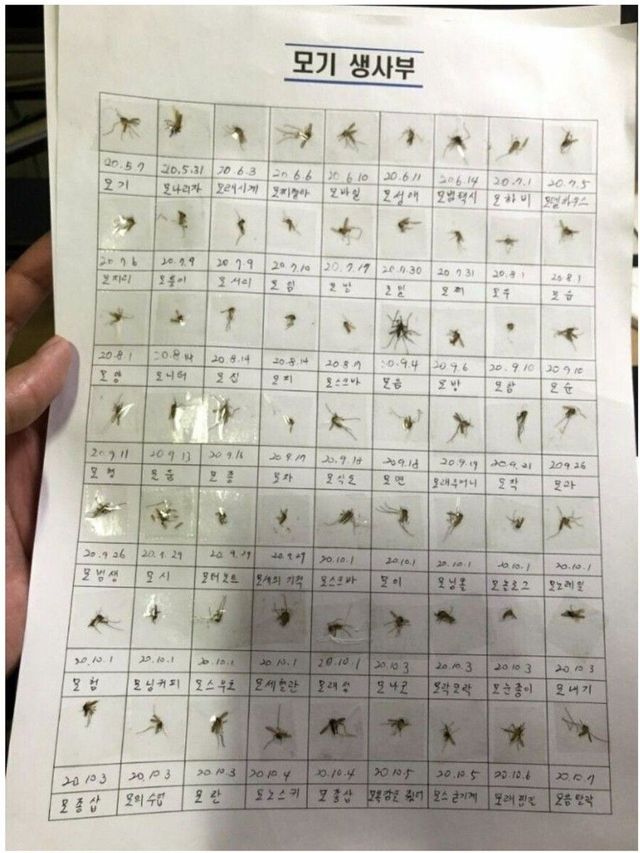 모기 생사부
20.5.7 20.5.31 20.6.3 20.6.6 20.6.10 20.6.11 20.6.14 20.7.1 20.7.5
모기 모나리자 모래시계 모바일 모범택시 모하비 모델하우스
20.7.6 20.7.9 20.7.9 20.7.10 20.7.17 20.7.30 20.7.31 20.8.1 20.8.1
모퉁이 모서리 모임 모반
20.8.1 20.8.14 20.8.14 20.8.14 20.8.17 20.9.4 20.9.6 20.9.10 20.9.10
모양 모니터 모집 모스크바 모음 모방 모함 모순
20.9.11 20.9.13 20.9.16 20.9.17 20.9.18 20.9.18 20.9.19 20.9.21 20.9.26
모형 모종 모자 모식도 모면 모래주머니 모작 모과
20.9.26 20.9.29 20.9.29 20.9.29 20.10.1 20.10.1 20.10.1 20.10.1 20.10.1
모범생 모시 모터보트 모세의 기적 모스크바 모이 모닝콜 모놀로그 모노레일
20.10.1 20.10.1 20.10.1 20.10.1 20.10.1 20.10.3 20.10.3 20.10.3 20.10.3
모험 모닝커피 모스부호 모세혈관 모래성 모나코 모락모락 모눈종이 모내기
20.10.3 20.10.3 20.10.3 20.10.4 20.10.4 20.10.5 20.10.5 20.10.6 20.10.7
모종삽 모의수업 모란 모노스키 모종삽 모래찜질 모음탄락